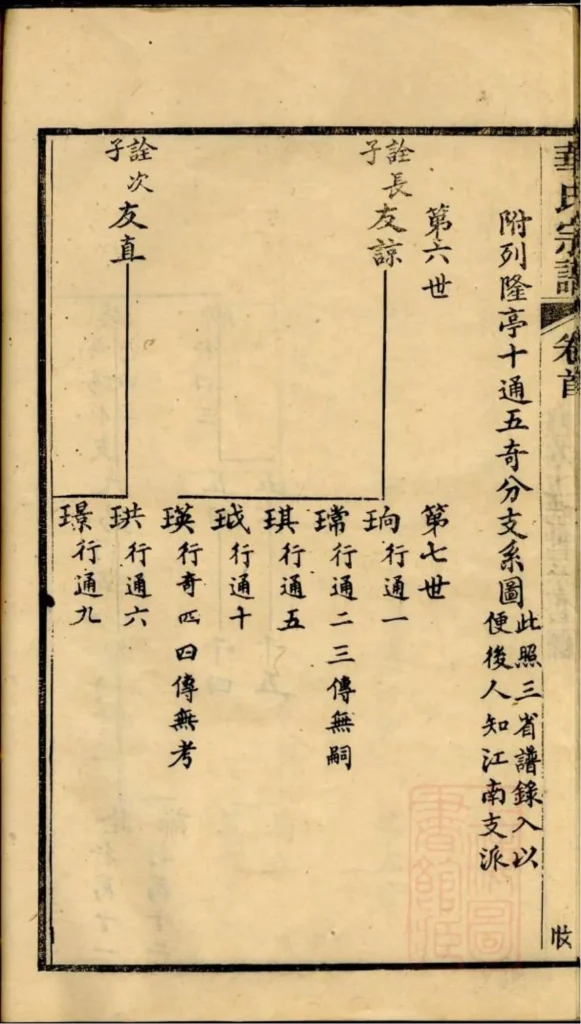 華氏宗譜 卷首
附列隆亭十通五奇分支系圖
此照三省譜錄入以
便後人知江南支派
第六世
詮長子 友諒
詮次子 友直
第七世
珦行通一
瑺行通二三傳無嗣
琪行通五
珬行通十
瑛行奇四四傳無考
珙行通六
璟行通九